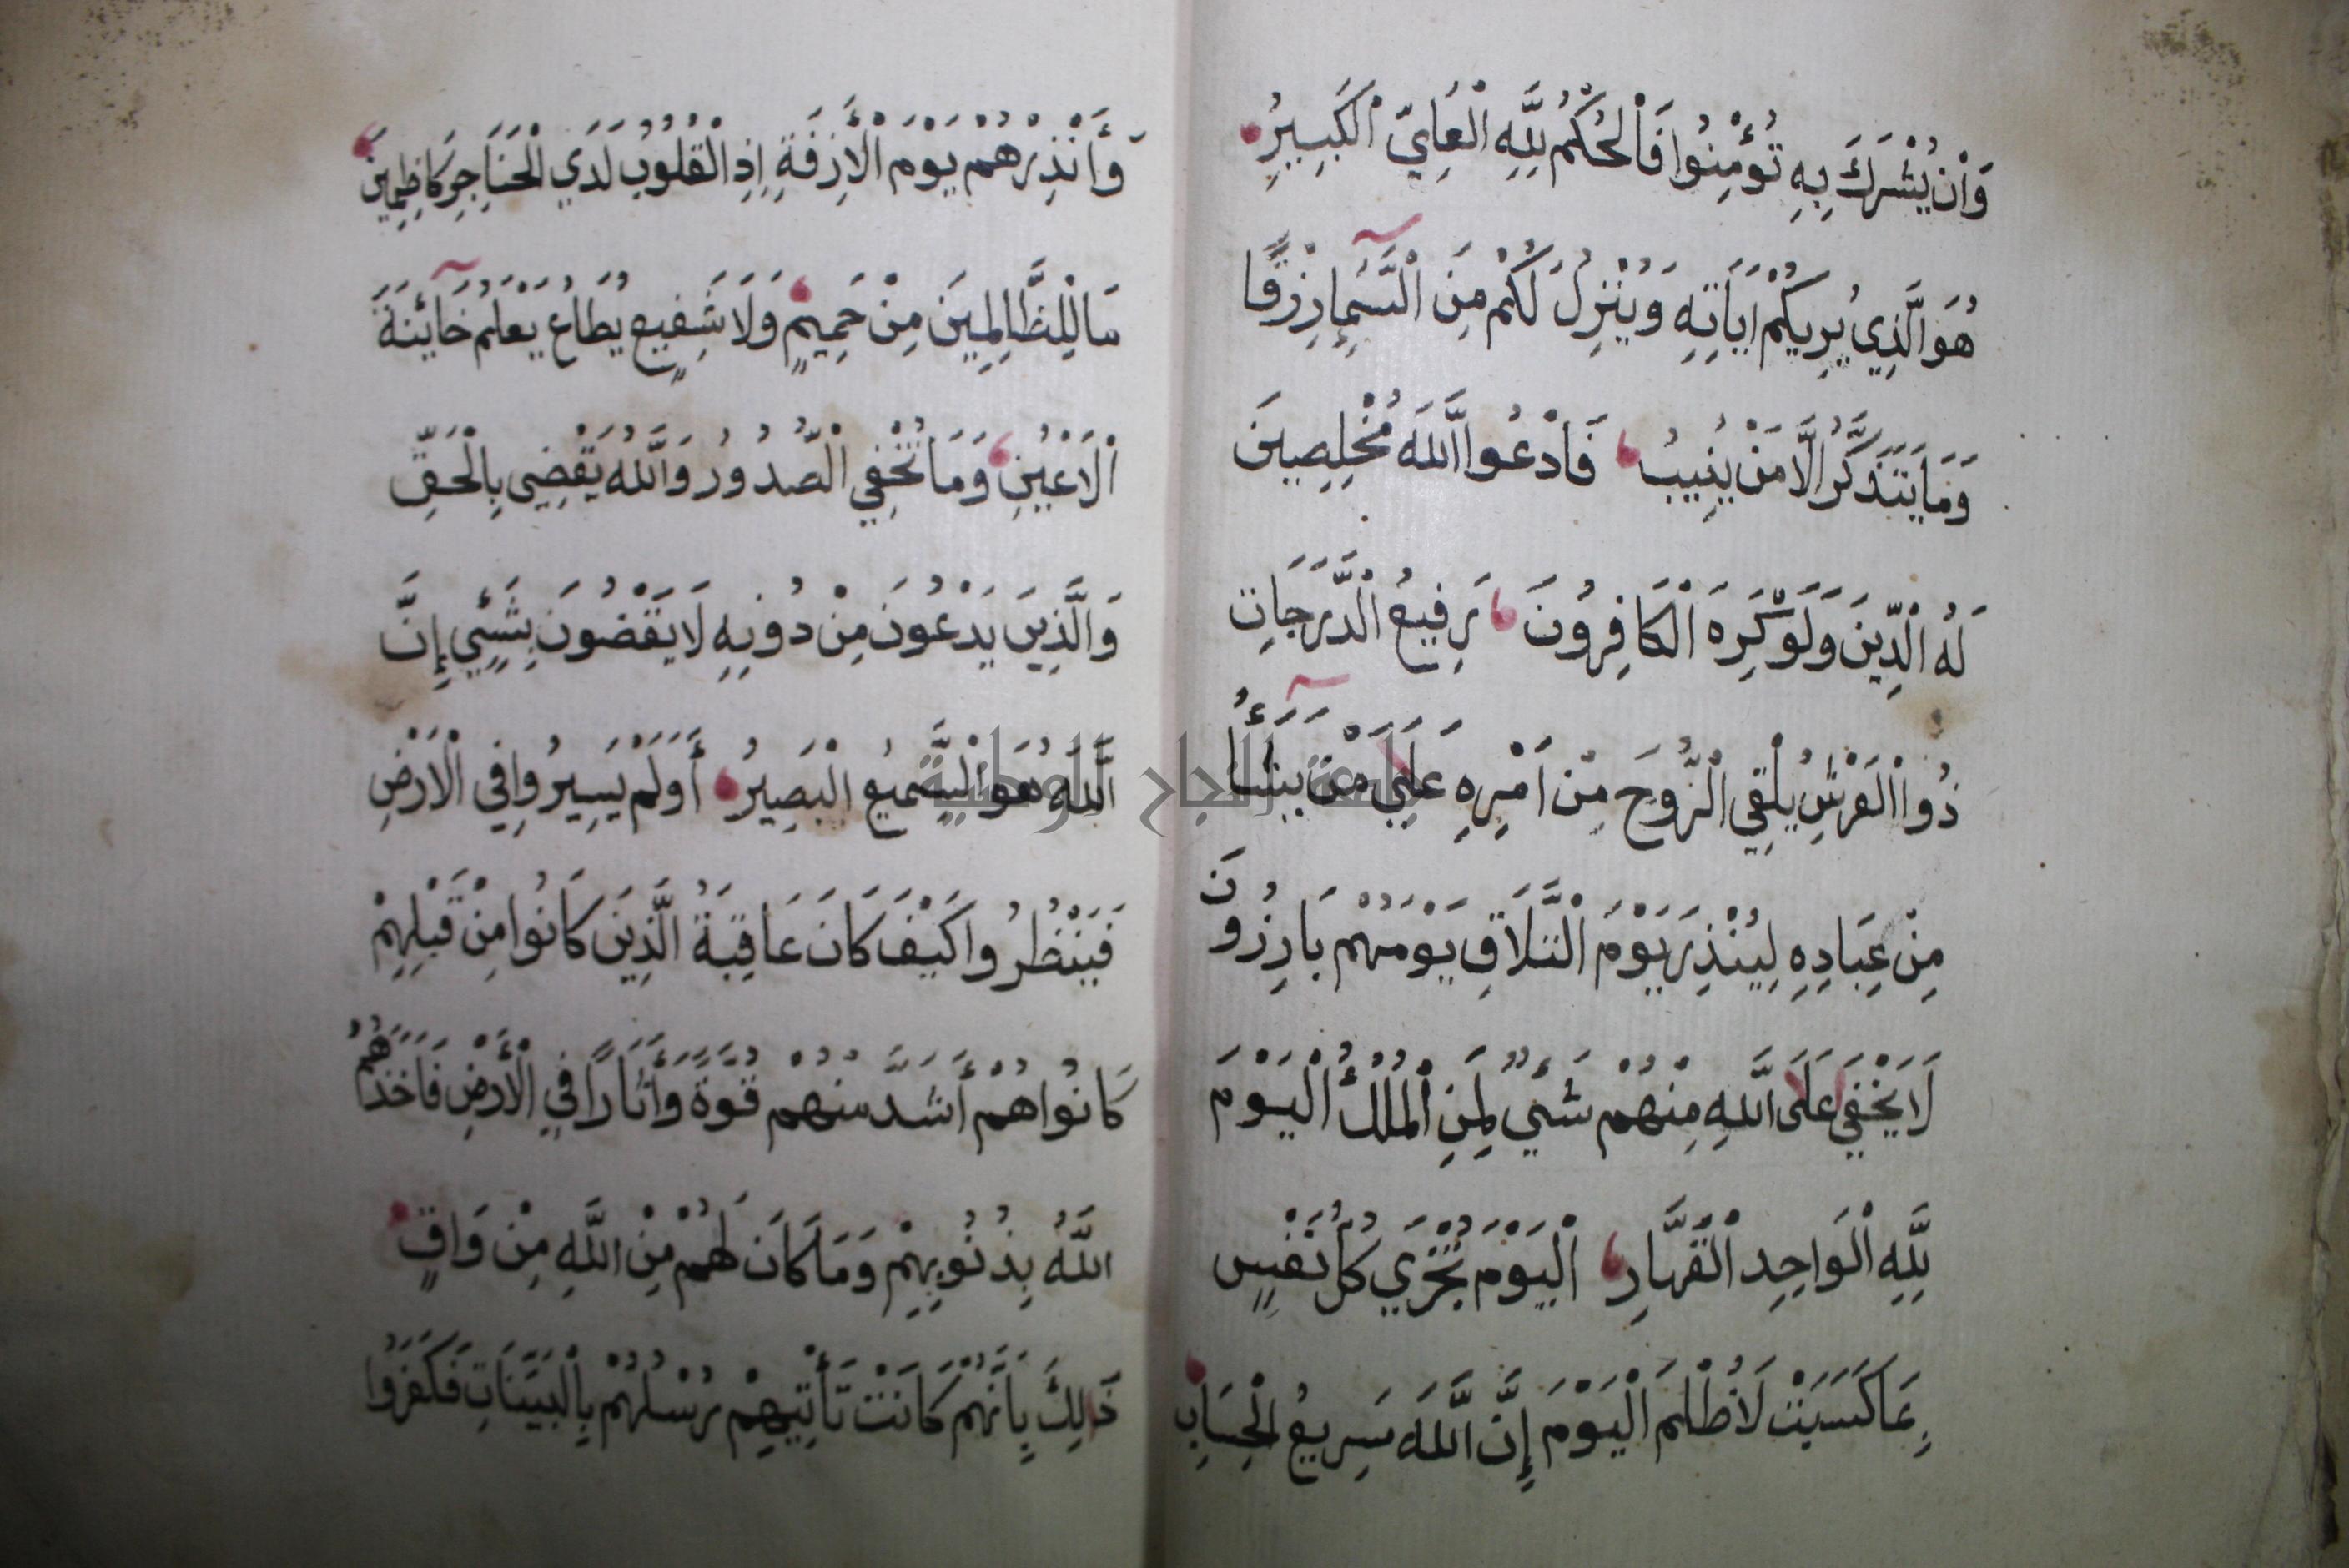 وَاِنْ يُشْرَكَ بِهِ تُؤْمِنُوا فَالْحُكْمُ لِلَّهِ الْعَلِيِّ الْكَبِيرِ
هُوَ الَّذِي يُرِيكُمْ اٰيَاتِهِ وَيُنْزِلُ لَكُمْ مِنَ السَّمَآءِ رِزْقًا
وَمَا يَتَذَكَّرُ اِلَّا مَنْ يُنِيبُ فَادْعُوا اللَّهَ مُخْلِصِينَ
لَهُ الدِّينَ وَلَوْ كَرِهَ الْكَافِرُونَ رَفِيعُ الدَّرَجَاتِ
ذُوا الْعَرْشِ يُلْقِي الرُّوحَ مِنْ اَمْرِهِ عَلَي مَنْ يَشَآءُ
مِنْ عِبَادِهِ لِيُنْذِرَ يَوْمَ التَّلَاقِ يَوْمَهُمْ بَارِزُونَ
لَا يَخْفَي عَلَى اللَّهِ مِنْهُمْ شَيْءٌ لِمَنِ الْمُلْكُ الْيَوْمَ
لِلَّهِ الْوَاحِدِ الْقَهَّارِ الْيَوْمَ تُجْزَي كُلُّ نَفْسٍ
بِمَا كَسَبَتْ لَا ظُلْمَ الْيَوْمَ إِنَّ اللَّهَ سَرِيعُ الْحِسَابِ
وَأَنْذِرْهُمْ يَوْمَ الْأَزِفَةِ اِذِ الْقُلُوبُ لَدَي الْحَنَاجِرِ كَاظِمِينَ
مَا لِلظَّالِمِينَ مِنْ حَمِيمٍ وَلَا شَفِيعٍ يُطَاعُ يَعْلَمُ خَآئِنَةَ
الْاَعْيُنِ وَمَا تُخْفِي الصُّدُورُ وَاللَّهُ يَقْضِي بِالْحَقِّ
وَالَّذِينَ يَدْعُونَ مِنْ دُونِهِ لَا يَقْضُونَ بِشَيْءٍ إِنَّ
اللَّهَ هُوَ السَّمِيعُ الْبَصِيرُ أَوَلَمْ يَسِيرُوا فِي الْاَرْضِ
فَيَنْظُرُوا كَيْفَ كَانَ عَاقِبَةُ الَّذِينَ كَانُوا مِنْ قَبْلِهِمْ
كَانُوا هُمْ أَشَدَّ مِنْهُمْ قُوَّةً وَأَثَارًا فِي الْأَرْضِ فَاَخَذَهُمُ
اللَّهُ بِذُنُوبِهِمْ وَمَا كَانَ لَهُمْ مِنَ اللَّهِ مِنْ وَاقٍ
ذَلِكَ بِاَنَّهُمْ كَانَتْ تَأْتِيهِمْ رُسْلُهُمْ بِالْبَيِّنَاتِ فَكَفَرُوا
جامعة النجاح الوطنية